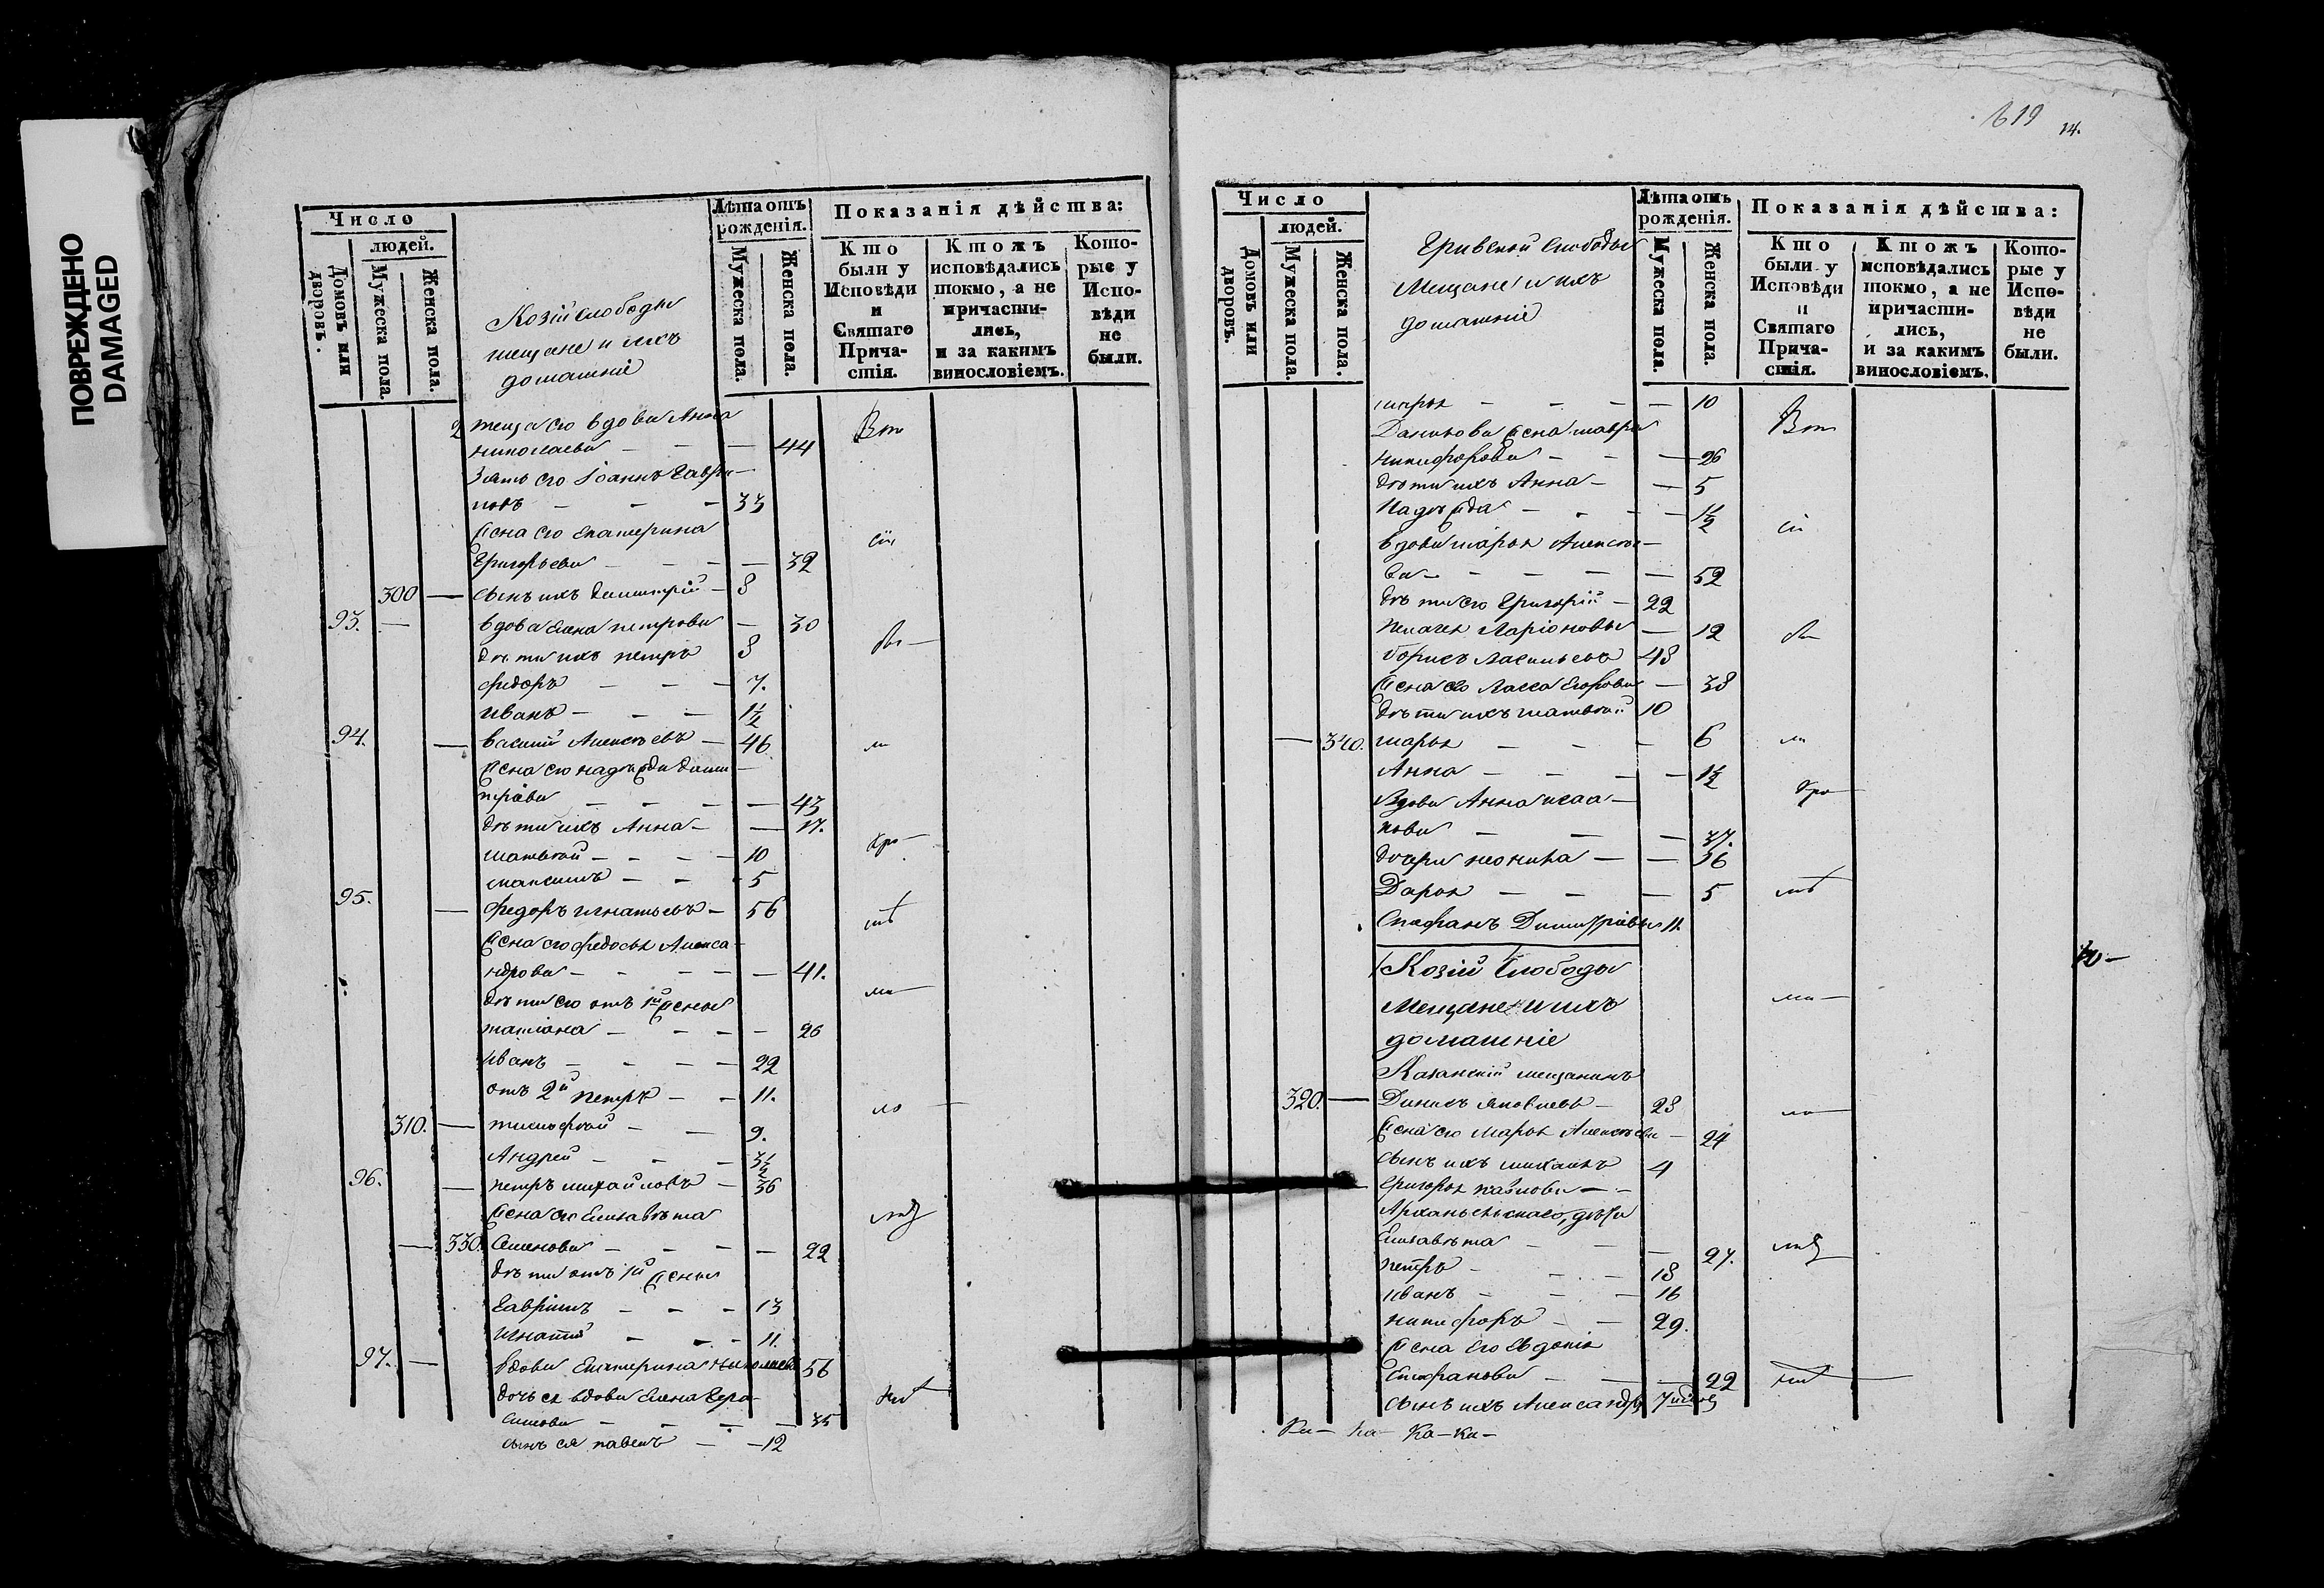 ПОВРЕЖДЕНО
DAMAGED
Число
людей.
Домовъ или дворовъ.
Мужеска пола.
Женска пола.
Козій слободы
мещане и ихъ
домашніе
Лѣта отъ рожденія.
Мужеска пола.
Женска пола.
Показанія дѣйства:
Кто были у Исповѣди и Святаго Причастія.
Ктожъ исповѣдались токмо, а не причастились, и за какимъ винословіемъ.
Которые у Исповѣди не были.
теща его вдова Анна
николаева — — 44
Зять его Іоаннъ Гаври
ловъ — — — 33
жена его Екатерина
Григорьева — — — 32
300 — сынъ ихъ Димитрій — 8
93. — вдова Елена петрова — 30
дѣти ихъ петръ 8
федоръ — — — 7.
Иванъ — — — 1½
94. — василій Алексѣевъ — 46
жена его надежда дими
тріева — — — — 43
дѣти ихъ Анна — — 17.
матвѣй — — — — 10
максимъ — — — 5
95. — федоръ игнатьевъ — 56
жена его федосья Алекса
ндрова — — — — — 41.
дѣти его отъ 1й жены
татіана — — — — 26
Иванъ — — — — 22
отъ 2й петръ — — 11.
310. — тимофей — — 9.
Андрей — — — 3½
96. — петръ михайловъ — 36
жена его Елизавѣта
— 330. Семенова — — — — 22
дѣти отъ 1й жены
Гавріилъ — — — 13
Игнатій — — — 11.
97. — вдова Екатерина николаева 56
дочь ея вдова Елена Гера
симова — — — — 35
сынъ ея павелъ — — 12
619
14.
Число
людей.
Домовъ или дворовъ.
Мужеска пола.
Женска пола.
Гривской слободы
Мещане и ихъ
домашніе
Лѣта отъ рожденія.
Мужеска пола.
Женска пола.
Показанія дѣйства:
Кто были у Исповѣди и Святаго Причастія.
Ктожъ исповѣдались токмо, а не причастились, и за какимъ винословіемъ.
Которые у Исповѣди не были.
марья — — — — 10
Данилова жена мавра
никифорова — — — 26
дѣти ихъ Анна — — 5
Надежда — — — — 1½
вдова марья Алексѣе
ва — — — — — 52
дѣти его Григорій — 22
пелагея Ларіонова — 12
борисъ Васильевъ 48
жена его Васса Егорова — 38
дѣти ихъ матвѣй 10
— 340. марья — — — 6
Анна — — — — 1½
Вдова Анна исаа
кова — — — 37.
дочери неонила — — 16
Дарья — — — 5
Стефанъ Димитріевъ 11.
Козій Слободы
Мещане и ихъ
домашніе
Казанскій мещанинъ
320. — Яковлевъ — 28
жена его Марья Алексѣева — 24
сынъ ихъ михаилъ 4
Григорья павлова —
Архангельскаго, дѣти
Елизавѣта — — — 27.
петръ — — — 18
иванъ — — — 16
никифоръ — — 29.
жена его Евдокія
Стефанова — — — 22
сынъ ихъ Александръ